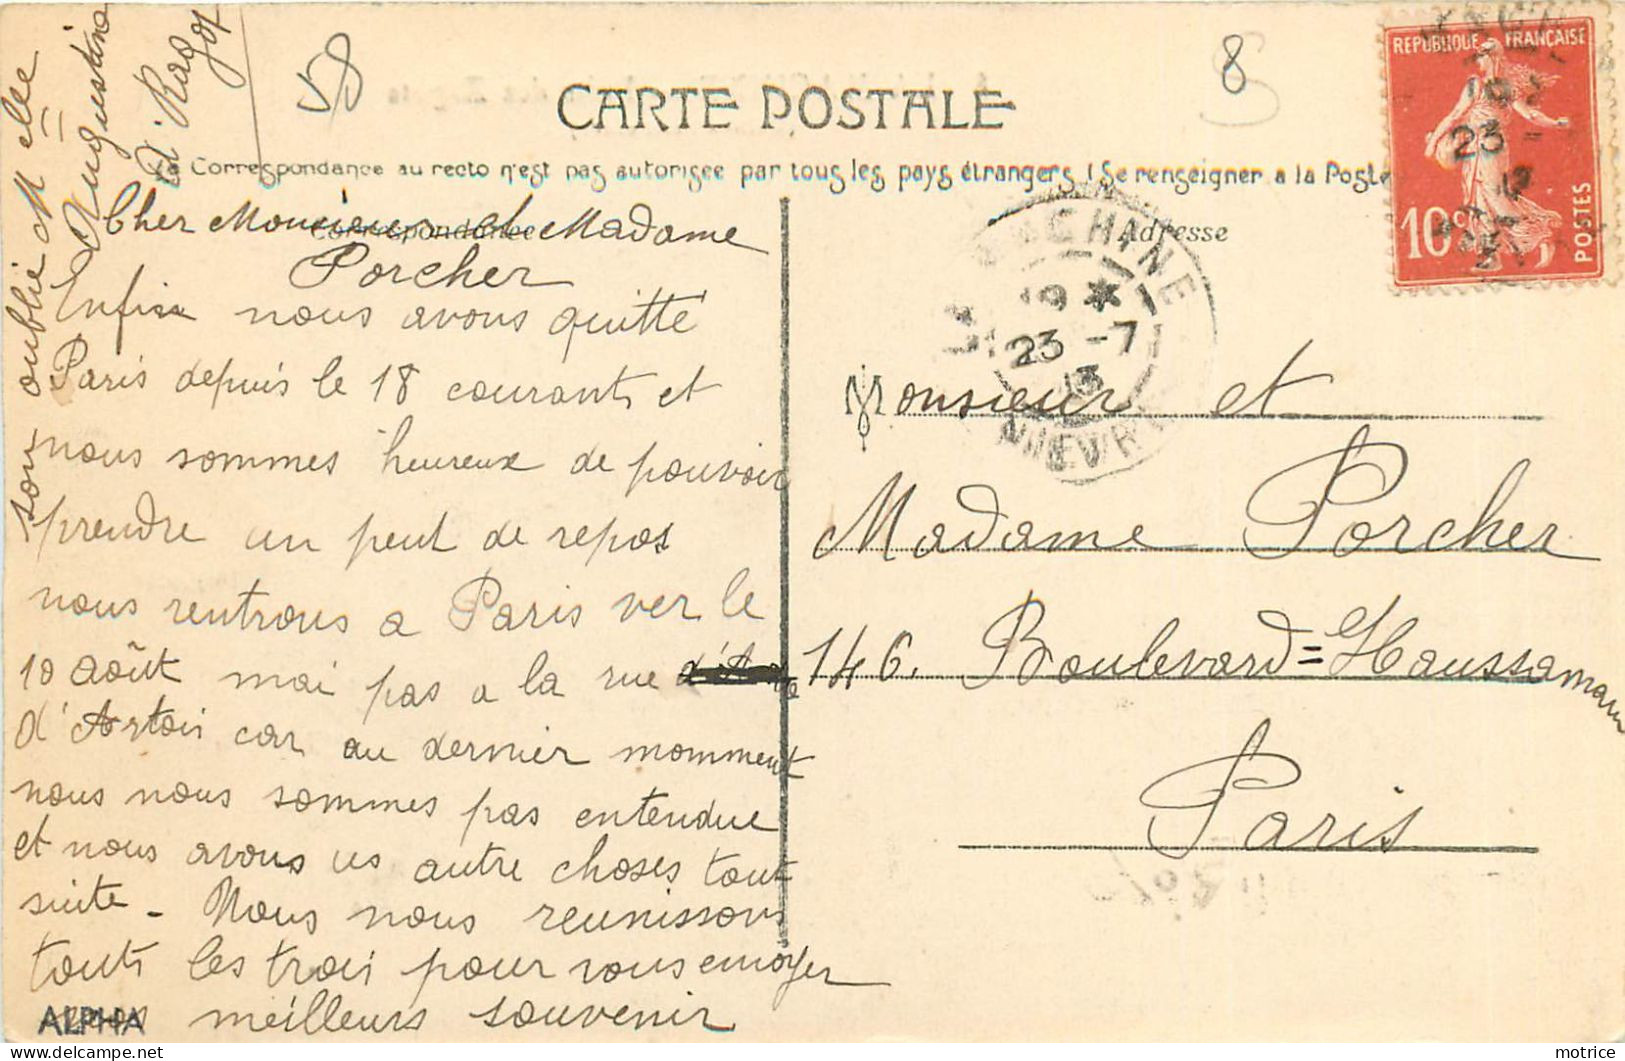 58
8
CARTE POSTALE
La Correspondance au recto n'est pas autorisée par tous les pays étrangers (Se renseigner a la Poste
Correspondance
Adresse
REPUBLIQUE FRANÇAISE
10c
POSTES
19
23
LA MACHINE
19 *
23 - 7
13
NIEVRE
Cher Monsieur et Madame
Porcher
Enfin nous avons quitté
Paris depuis le 18 courants et
nous sommes heureux de pouvoir
prendre un peut de repos
nous rentrons a Paris ver le
10 août mai pas a la rue
d'Artois car au dernier momment
nous nous sommes pas entendue
et nous avons us autre choses tout
suite - Nous nous reunissons
touts les trois pour vous envoyer
nos meilleurs souvenir
son oublié Melle
Augustine
A. Ragot
Monsieur et
Madame Porcher
146. Boulevard=Haussamann
Paris
ALPHA
motrice delcampe.net